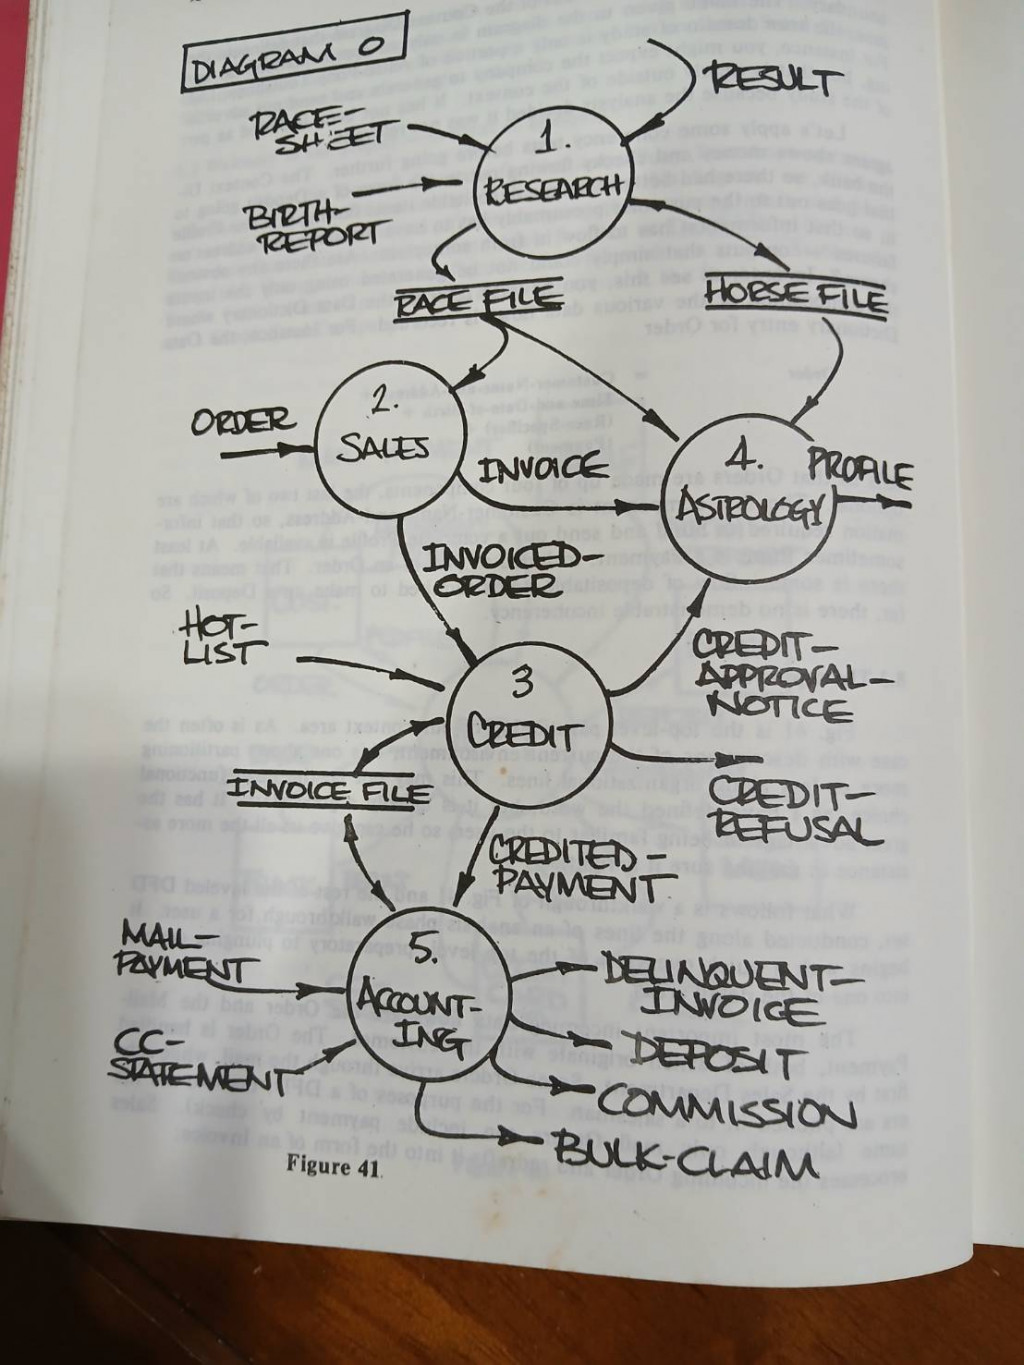 DIAGRAM 0
RESULT
RACE-
SHEET
1.
RESEARCH
BIRTH-
REPORT
RACE FILE
HORSE FILE
2.
SALES
ORDER
INVOICE
4.
ASTROLOGY
PROFILE
INVOICED-
ORDER
HOT-
LIST
3
CREDIT
CREDIT-
APPROVAL-
NOTICE
INVOICE FILE
CREDIT-
REFUSAL
CREDITED-
PAYMENT
MAIL-
PAYMENT
5.
ACCOUNT-
ING
DELINQUENT-
INVOICE
CC-
STATEMENT
DEPOSIT
COMMISSION
BULK-CLAIM
Figure 41.